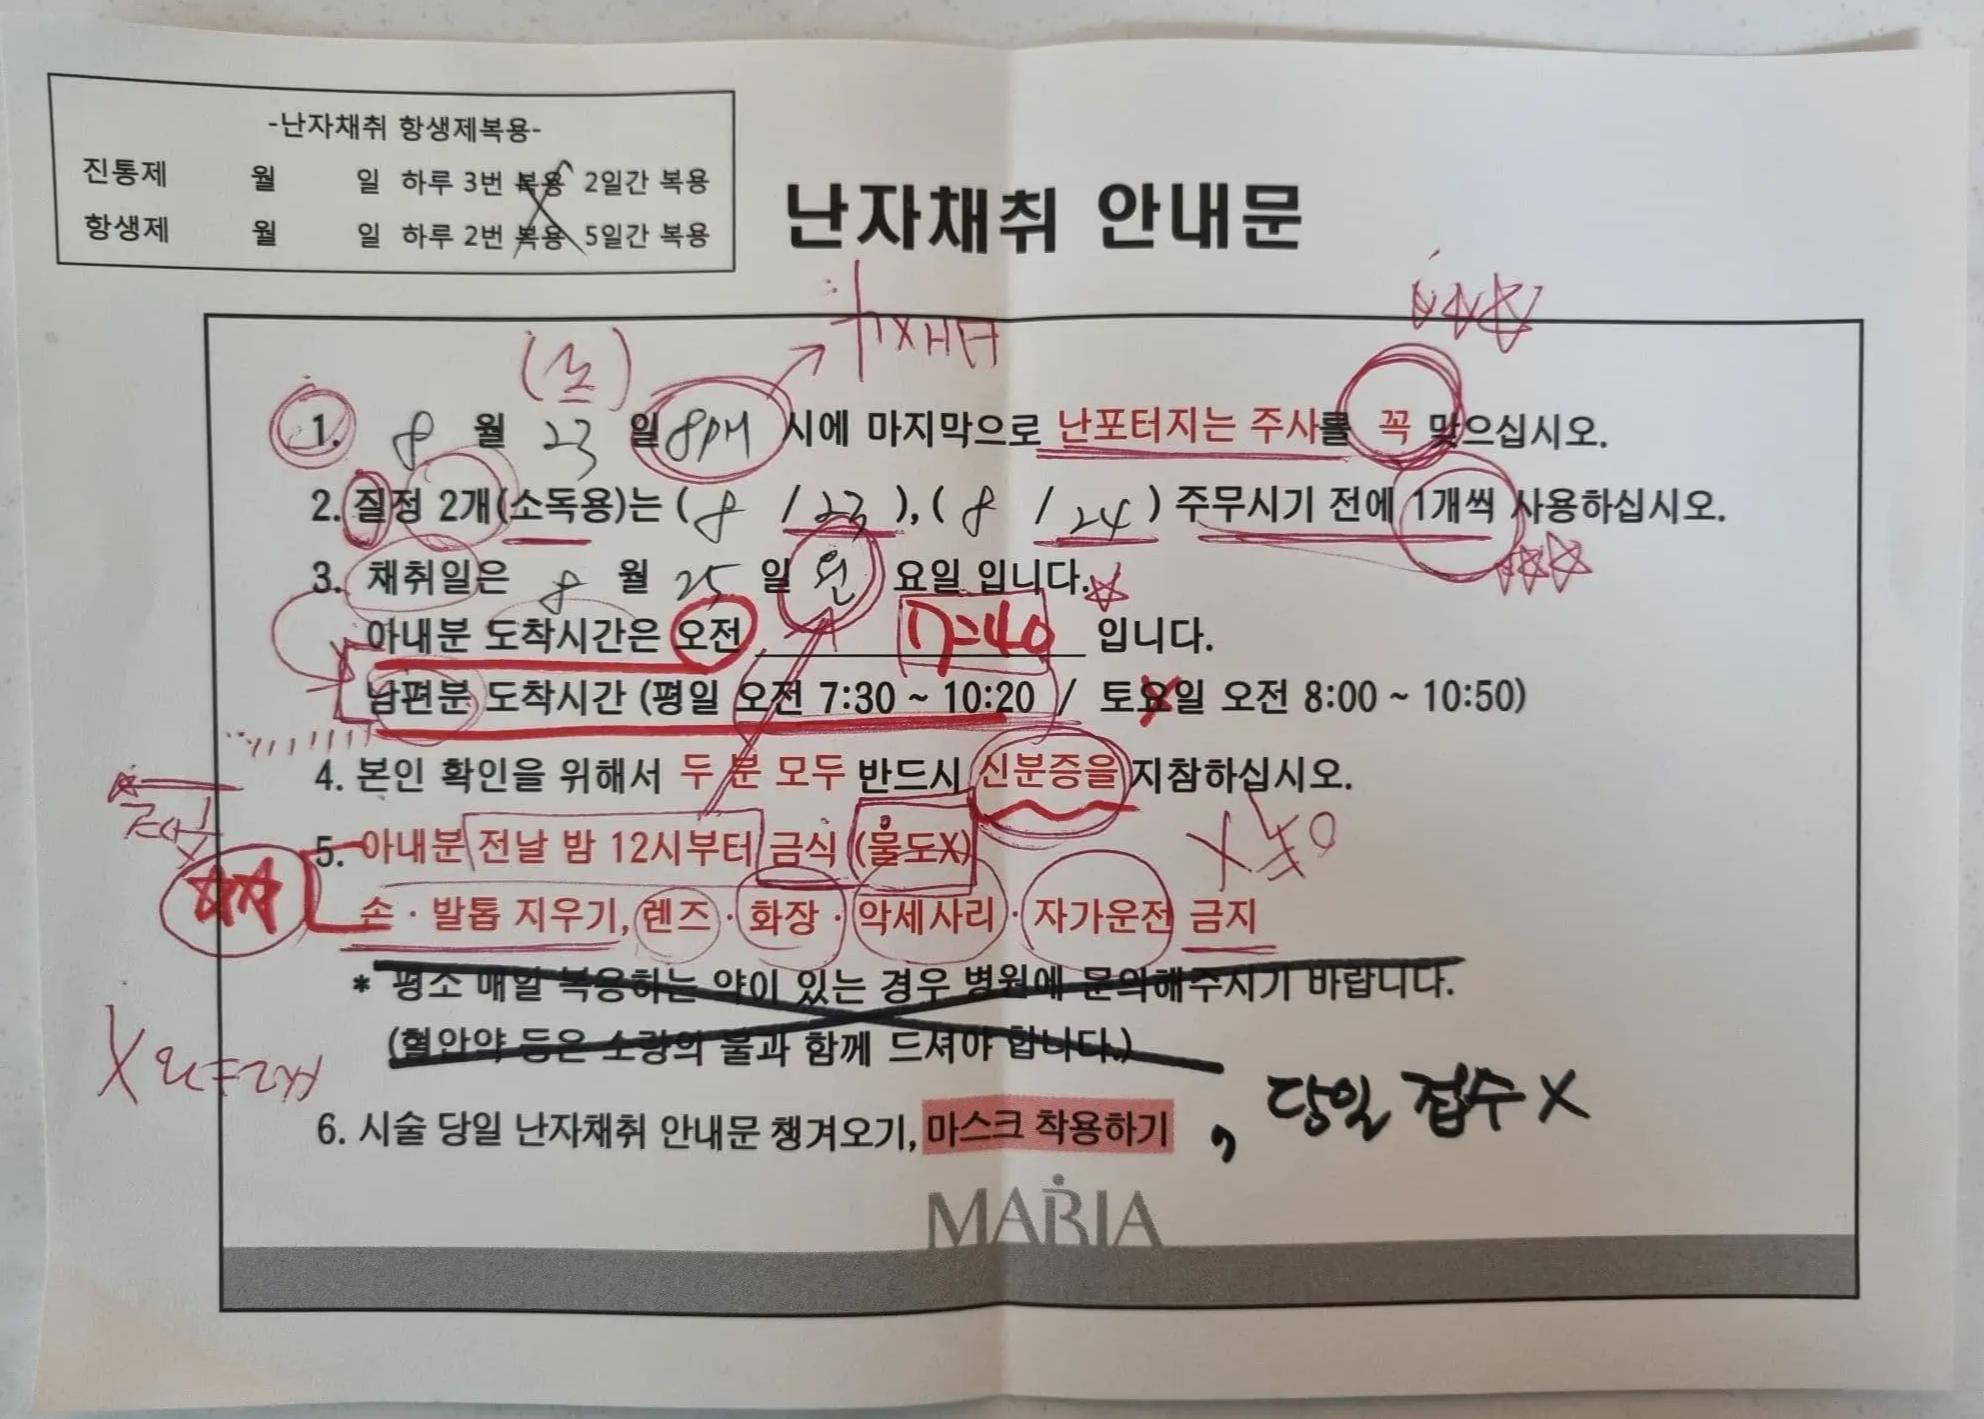 -난자채취 항생제복용-
진통제 월 일 하루 3번 복용 2일간 복용
항생제 월 일 하루 2번 복용 5일간 복용
난자채취 안내문
(토)
1. 8 월 23 일 8PM 시에 마지막으로 난포터지는 주사를 꼭 맞으십시오.
2. 질정 2개(소독용)는 ( 8 / 23 ), ( 8 / 24 ) 주무시기 전에 1개씩 사용하십시오.
3. 채취일은 8 월 25 일 월 요일 입니다.
아내분 도착시간은 오전 7:40 입니다.
남편분 도착시간 (평일 오전 7:30 ~ 10:20 / 토요일 오전 8:00 ~ 10:50)
4. 본인 확인을 위해서 두 분 모두 반드시 신분증을 지참하십시오.
5. 아내분 전날 밤 12시부터 금식 (물도X)
손 · 발톱 지우기, 렌즈 · 화장 · 악세사리 · 자가운전 금지
* 평소 매일 복용하는 약이 있는 경우 병원에 문의해주시기 바랍니다.
(혈안약 등은 소량의 물과 함께 드셔야 합니다.)
6. 시술 당일 난자채취 안내문 챙겨오기, 마스크 착용하기 , 당일 접수 X
MARIA